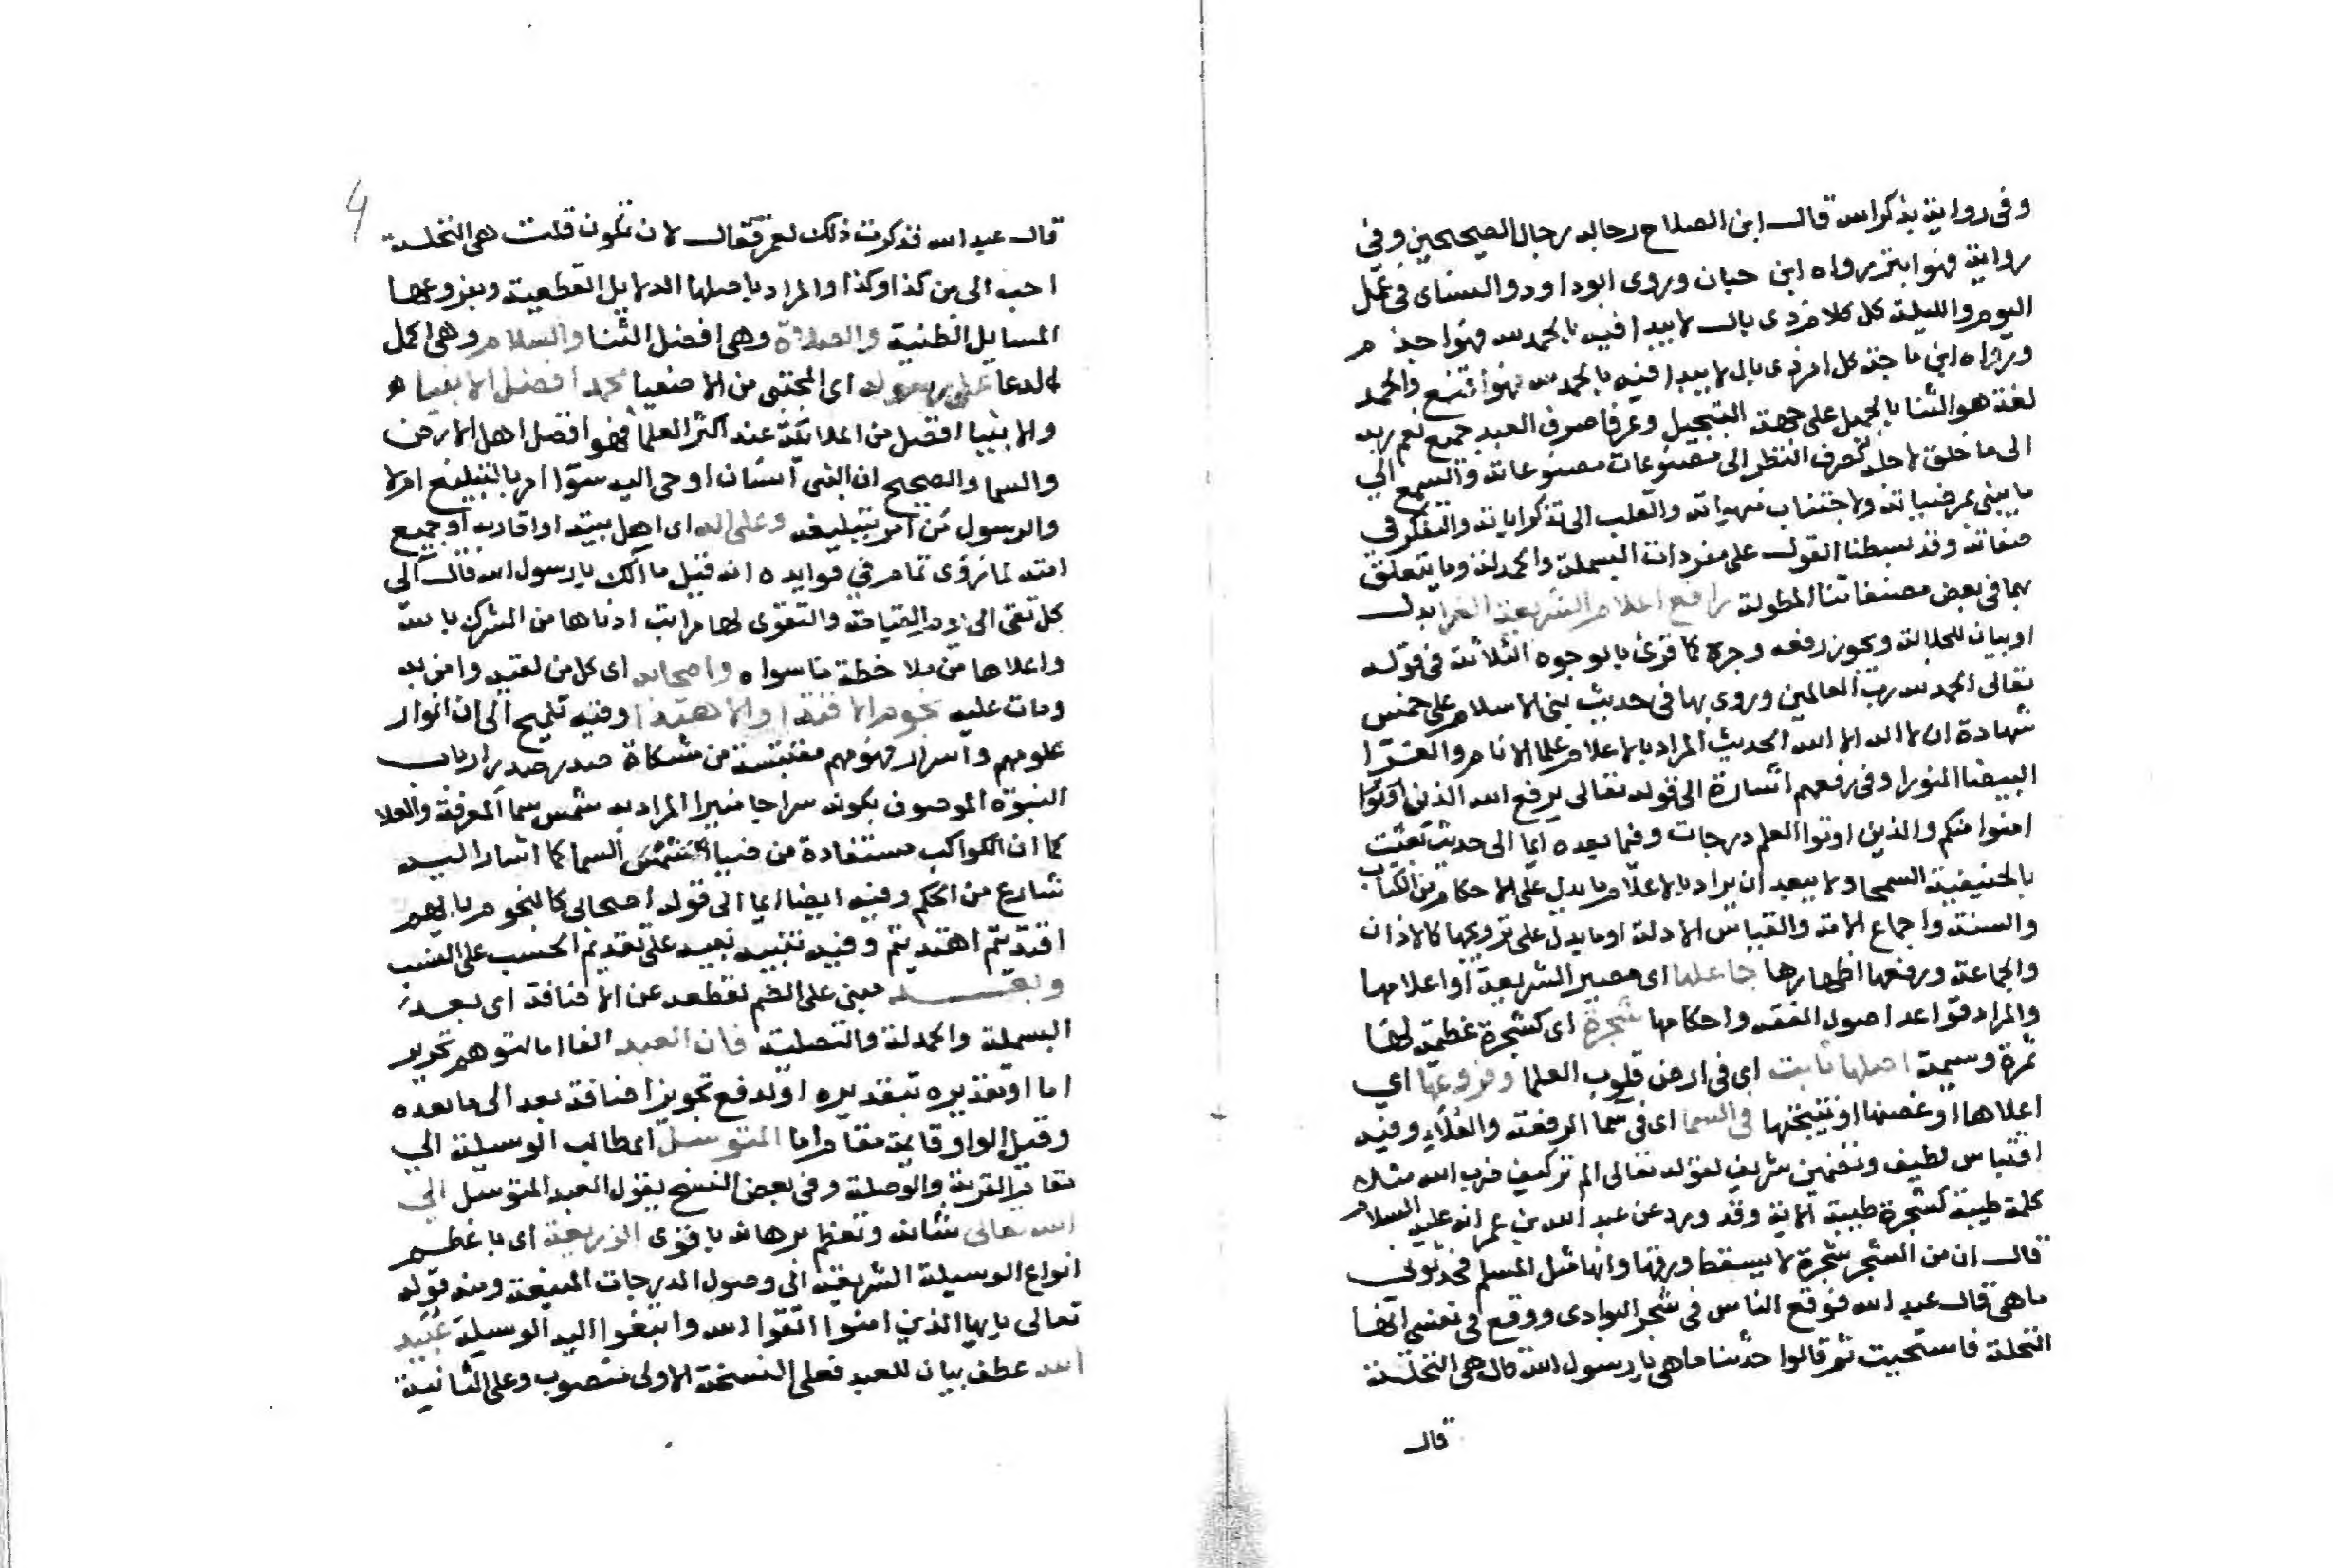 وفى رواية بذكر الله قال ابن الصلاح رجاله رجال الصحيحين وفى
رواية فهو ابتر رواه ابن حبان وروى ابوداود والنساى فى عمل
اليوم والليلة كل كلام ذى بال لا يبدا فيه بالحمد لله فهو اجذم
ورواه ابن ماجة كل امر ذى بال لا يبدا فيه بالحمد لله فهو اقطع والحمد
لغة هو الثنا بالجميل على جهة التبجيل وعرفا صرف العبد جميع نعم ربه
الى ما خلق لاجله كصرف النظر الى مصنوعاته والسمع الى
ما ينبى عن مرضياته ولاجتناب منهياته والقلب الى تذكر اياته والتفكر فى
صفاته وقد بسطنا القول على مفردات البسملة والحمدلة وما يتعلق
بهما فى بعض مصنفاتنا المطولة رافع اعلام الشريعة الغرا بدل
او بيان للجلالة ويجوز رفعه وجره كما قرئ بالوجوه الثلاثة فى قوله
تعالى الحمد لله رب العالمين وروى بها فى حديث بنى الاسلام على خمس
شهادة ان لا اله الا الله الحديث المراد بالاعلام علما الانام والغرا
البيضا النورا وفى رفعهم اشارة الى قوله تعالى يرفع الله الذين
امنوا منكم والذين اوتوا العلم درجات وفيما بعده ايما الى حديث بعثت
بالحنيفية السمحا ولا يبعد ان يراد بالاعلام ما يدل على الاحكام من الكتاب
والسنة واجماع الامة والقياس الادلة او ما يدل على ترويجها كالاذان
والجماعة ورفعها اظهارها جاعلها اى مصير الشريعة او اعلامها
والمراد قواعد اصول الفقه واحكامها شجرة اى كشجرة عظيمة لها
ثمرة وسيمة اصلها ثابت اى فى ارض قلوب العلما وفروعها اى
اعلاها او غصنها او نتيجتها فى السما اى فى سما الرفعة والعلاء وفيه
اقتباس لطيف وتضمين شريف لقوله تعالى الم تر كيف ضرب الله مثلا
كلمة طيبة كشجرة طيبة الاية وقد ورد عن عبد الله بن عمر انه عليه السلام
قال ان من الشجر شجرة لا يسقط ورقها وانها مثل المسلم فحدثونى
ما هى قال عبد الله فوقع الناس فى شجر البوادى ووقع فى نفسى انها
النخلة فاستحييت ثم قالوا حدثنا ما هى يا رسول الله قال هى النخلة
قال
4
قال عبد الله فذكرت ذلك لعمر فقال لان تكون قلت هى النخلة
احب الى من كذا وكذا والمراد باصلها الدلايل القطعية وبفروعها
المسايل الظنية والصلاة وهى افضل الثنا والسلام وهى اكمل
الدعا على رسوله اى المجتبى من الاصفيا محمد افضل الانبيا
والانبيا افضل من الملائكة عند اكثر العلما فهو افضل اهل الارض
والسما والصحيح ان النبى انسان اوحى اليه سوا امر بالتبليغ ام لا
والرسول من امر بتبليغه وعلى اله اى اهل بيته او اقاربه او جميع
امته لما روى تمام فى فوايده انه قيل ما الك يا رسول الله قال الى
كل تقى الى يوم القيامة والتقوى لها مراتب ادناها من الشرك بالله
واعلاها من ملاحظة ما سواه واصحابه اى كل من لقيه وامن به
ومات عليه نجوم الاقتدا والاهتدا وفيه تلميح الى ان انوار
علومهم واسرار فهومهم مقتبسة من مشكاة صدر صدر ارباب
النبوة الموصوف بكونه سراجا منيرا المراد به شمس سما المعرفة والعلا
كما ان الكواكب مستفادة من ضيا شمس السما كما اشار اليه
شارع من الحكم وفيه ايضا ايما الى قوله اصحابى كالنجوم بايهم
اقتديتم اهتديتم وفيه تنبيه نبيه على تقديم الحسب على النسب
وبعد مبنى على الضم لقطعه عن الاضافة اى بعد
البسملة والحمدلة والتصلية فان العبد الفا اما لتوهم تحرير
اما او تقديره او لدفع تجويز اضافة بعد الى ما بعده
وقيل الواو قايمة مقام اما المتوسل اى طالب الوسيلة الى
مقام القربة والوصلة وفى بعض النسخ يقول العبد المتوسل الى
الله تعالى شانه وتعظم برهانه باقوى الذريعة اى باعظم
انواع الوسيلة الشريفة الى وصول الدرجات المنيعة ومنه قوله
تعالى يايها الذين امنوا اتقوا الله وابتغوا اليه الوسيلة عبيد
الله عطف بيان للعبد فعلى النسخة الاولى منصوب وعلى الثانية